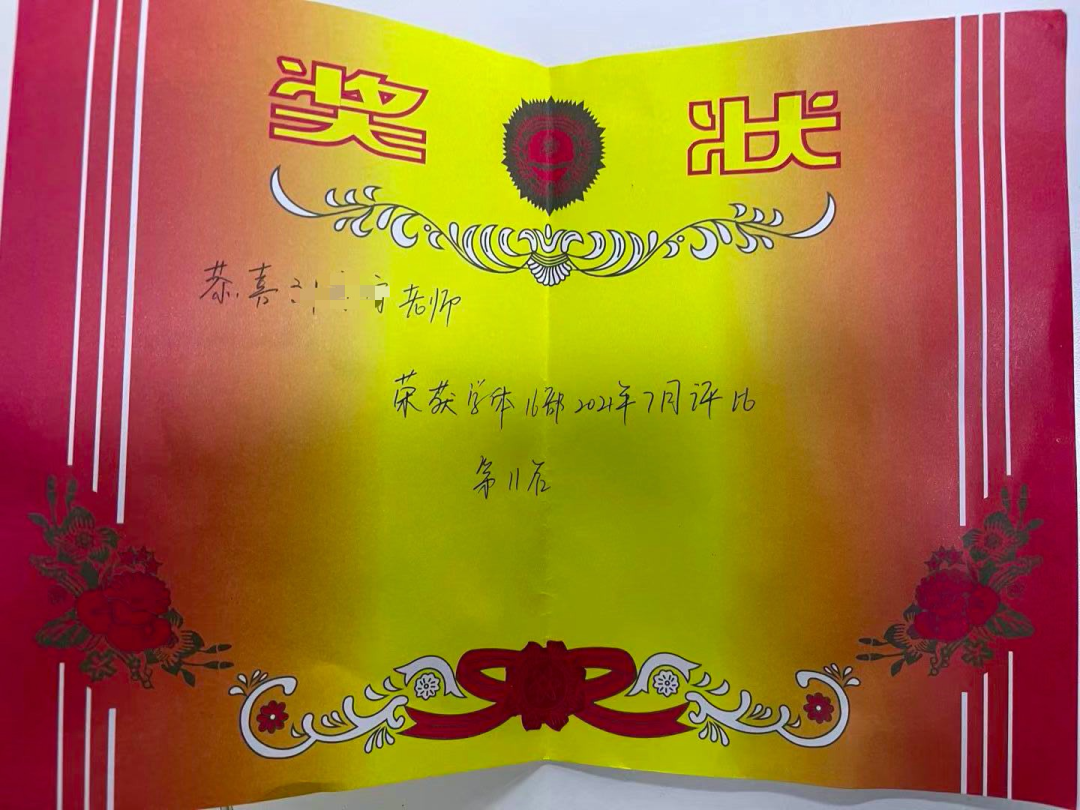 奖状
恭喜老师
荣获字体16部2021年7月评比
第11名